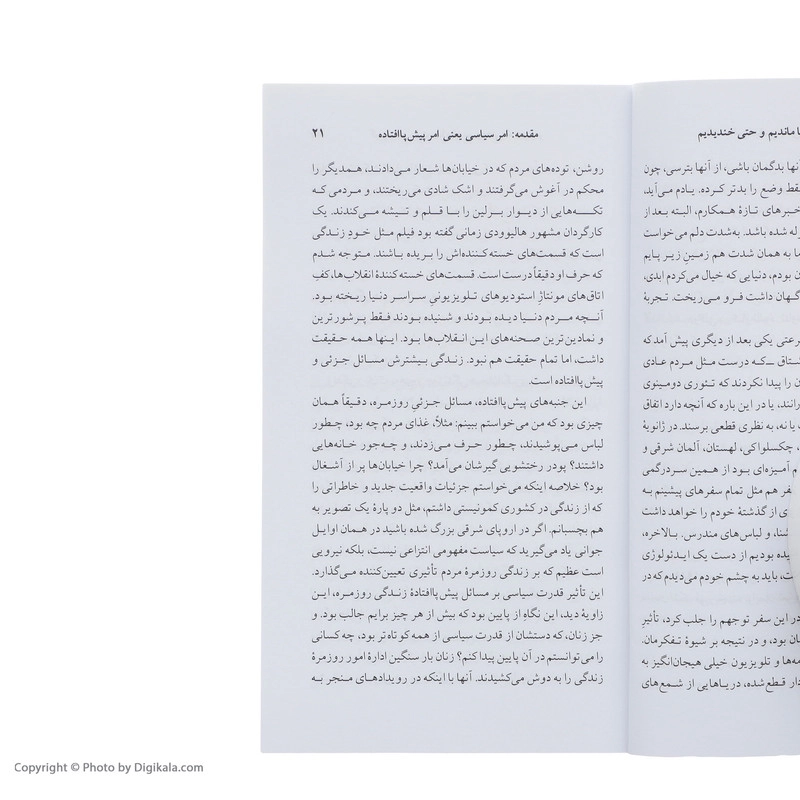 ا ماندیم و حتی خندیدیم
آنها بدگمان باشی، از آنها بترسی، چون
فقط وضع را بدتر کرده. یادم می‌آید،
خبرهای تازهٔ همکارم، البته بعد از
زله شده باشد. به‌شدت دلم می‌خواست
ما به همان شدت هم زمین زیر پایم
ن بودم، دنیایی که خیال می‌کردم ابدی،
گهان داشت فرو می‌ریخت. تجربهٔ
رعتی یکی بعد از دیگری پیش آمد که
شتاق ــ که درست مثل مردم عادی
ن را پیدا نکردند که تئوری دومینوی
رانند، یا در این باره که آنچه دارد اتفاق
یا نه، به نظری قطعی برسند. در ژانویهٔ
، چکسلواکی، لهستان، آلمان شرقی و
م آمیزه‌ای بود از همین سردرگمی
فر هم مثل تمام سفرهای پیشینم به
ی از گذشتهٔ خودم را خواهد داشت
شنا، و لباس‌های مندرس. بالاخره،
یده بودیم از دست یک ایدئولوژی
ت، باید به چشم خودم می‌دیدم که در
در این سفر توجهم را جلب کرد، تأثیر
ن بود، و در نتیجه بر شیوهٔ تفکرمان.
مه‌ها و تلویزیون خیلی هیجان‌انگیز به
دار قطع‌شده، دریاهایی از شمع‌های
مقدمه: امر سیاسی یعنی امر پیش‌پاافتاده ۲۱
روشن، توده‌های مردم که در خیابان‌ها شعار می‌دادند، همدیگر را
محکم در آغوش می‌گرفتند و اشک شادی می‌ریختند، و مردمی که
تکه‌هایی از دیوار برلین را با قلم و تیشه می‌کندند. یک
کارگردان مشهور هالیوودی زمانی گفته بود فیلم مثل خودِ زندگی
است که قسمت‌های خسته‌کننده‌اش را بریده باشند. متوجه شدم
که حرف او دقیقاً درست است. قسمت‌های خسته‌کنندهٔ انقلاب‌ها، کفِ
اتاق‌های مونتاژِ استودیوهای تلویزیونیِ سراسر دنیا ریخته بود.
آنچه مردم دنیا دیده بودند و شنیده بودند فقط پرشورترین
و نمادین‌ترین صحنه‌های این انقلاب‌ها بود. اینها همه حقیقت
داشت، اما تمام حقیقت هم نبود. زندگی بیشترش مسائل جزئی و
پیش‌پاافتاده است.
این جنبه‌های پیش‌پاافتاده، مسائل جزئیِ روزمره، دقیقاً همان
چیزی بود که من می‌خواستم ببینم: مثلاً، غذای مردم چه بود، چطور
لباس می‌پوشیدند، چطور حرف می‌زدند، و چه‌جور خانه‌هایی
داشتند؟ پودر رختشویی گیرشان می‌آمد؟ چرا خیابان‌ها پر از آشغال
بود؟ خلاصه اینکه می‌خواستم جزئیات واقعیت جدید و خاطراتی را
که از زندگی در کشوری کمونیستی داشتم، مثل دو پارهٔ یک تصویر به
هم بچسبانم. اگر در اروپای شرقی بزرگ شده باشید در همان اوایل
جوانی یاد می‌گیرید که سیاست مفهومی انتزاعی نیست، بلکه نیرویی
است عظیم که بر زندگی روزمرهٔ مردم تأثیری تعیین‌کننده می‌گذارد.
این تأثیر قدرت سیاسی بر مسائل پیش‌پاافتادهٔ زندگی روزمره، این
زاویهٔ دید، این نگاهِ از پایین بود که بیش از هر چیز برایم جالب بود. و
جز زنان، که دستشان از قدرت سیاسی از همه کوتاه‌تر بود، چه کسانی
را می‌توانستم در آن پایین پیدا کنم؟ زنان بار سنگین ادارهٔ امور روزمرهٔ
زندگی را به دوش می‌کشیدند. آنها با اینکه در رویدادهای منجر به
Copyright © Photo by Digikala.com